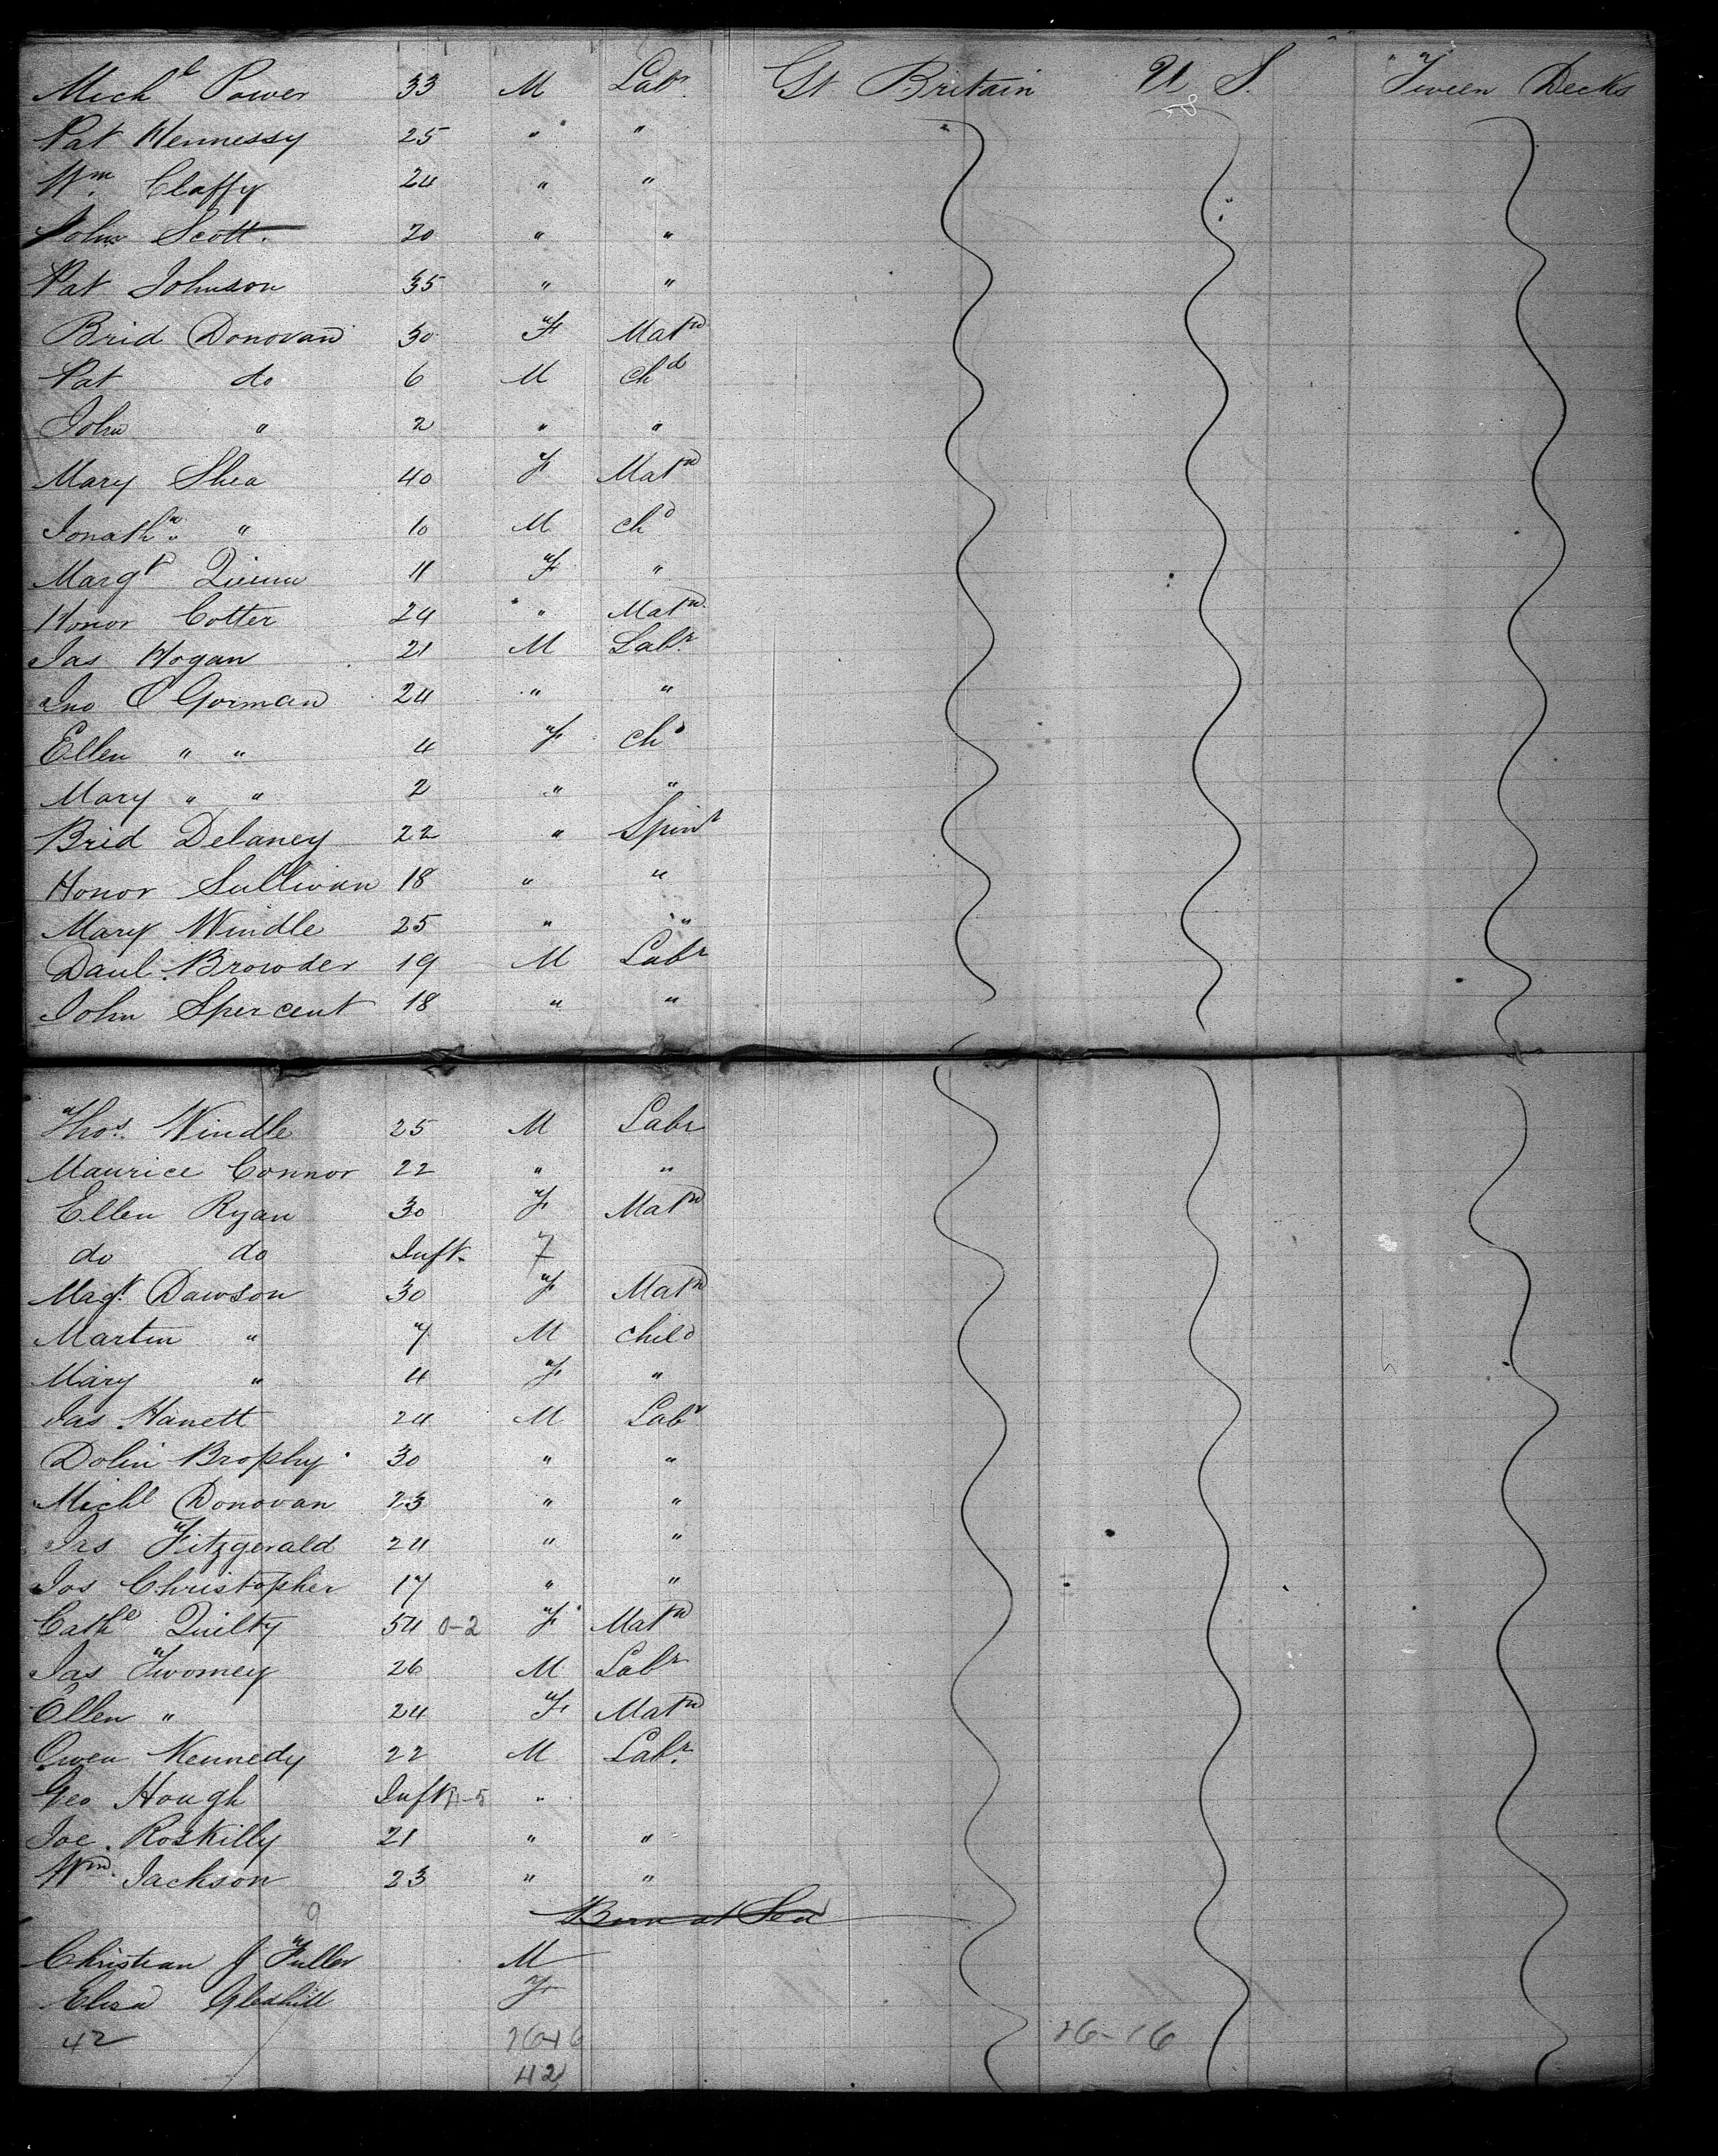 Mich^l Power 33 M Lab^r. Gt Britain U S. Tween Decks
Pat Hennessy 25 " "
W^m Claffy 24 " "
John Scott. 20 " "
Pat Johnson 35 " "
Brid Donovan 30 F Mat^n
Pat do 6 M ch^d
John " 2 " "
Mary Shea 40 F Mat^n
Jonath^n. " 10 M ch^d
Marg^t Quinn 11 F "
Honor Cotter 24 " Mat^n.
Jas Hogan 21 M Lab^r.
Jno O Gorman 24 " "
Ellen " " 4 F ch^d
Mary " " 2 " "
Brid Delaney 22 " Spin^t
Honor Sullivan 18 " "
Mary Windle 25 " "
Danl. Browder 19 M Lab^r
John Spercent 18 " "
Tho^s. Windle 25 M Labr
Maurice Connor 22 " "
Ellen Ryan 30 F Mat^n
do do Inft. F
Mag^t. Dawson 30 F Mat^n
Martin " 7 M child
Mary " 4 F "
Jas. Hanett 24 M Lab^r
Dolin Brophy 30 " "
Mich^l Donovan 23 " "
Jas Fitzgerald 24 " "
Jos Christopher 17 " "
Cath^e Quilty 54 0-2 F Mat^n
Jas Twomey 26 M Lab^r
Ellen " 24 F Mat^n
Owen Kennedy 22 M Lab^r.
Geo Hough Inft "
Joe. Roskilly 21 " "
W^m. Jackson 23 " "
9 Born at Sea
Christian J Fuller M
Eliza Gledhill F
42 26-16 26-16
42